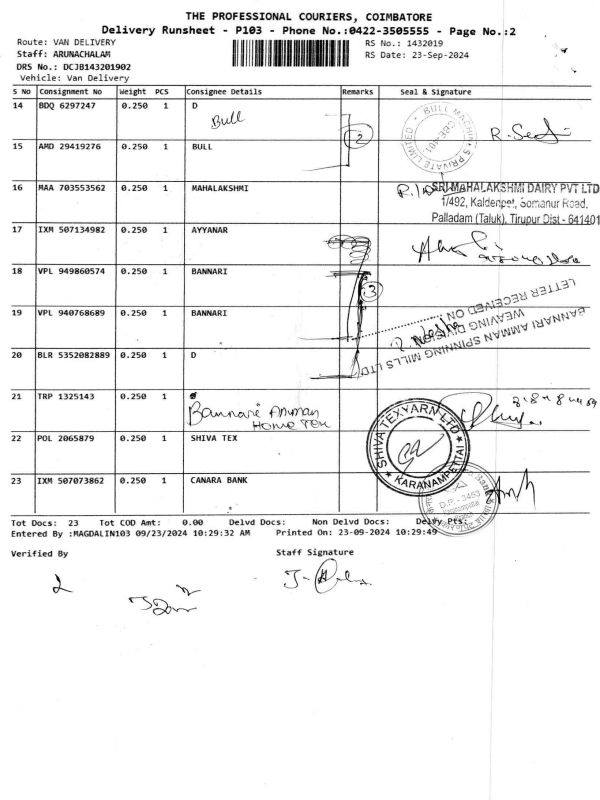 THE PROFESSIONAL COURIERS, COIMBATORE
Delivery Runsheet - P103 - Phone No.:0422-3505555 - Page No.:2
Route: VAN DELIVERY
RS No.: 1432019
Staff: ARUNACHALAM
RS Date: 23-Sep-2024
DRS No.: DCJB143201902
Vehicle: Van Delivery
S No Consignment No Weight PCS Consignee Details Remarks Seal & Signature
14 BDQ 6297247 0.250 1 D
Bull
2
BULL MACHINES PRIVATE LIMITED
15 AMD 29419276 0.250 1 BULL
16 MAA 703553562 0.250 1 MAHALAKSHMI
SRI MAHALAKSHMI DAIRY PVT LTD
1/492, Kaldenpet, Somanur Road,
Palladam (Taluk), Tirupur Dist - 641401
17 IXM 507134982 0.250 1 AYYANAR
18 VPL 949860574 0.250 1 BANNARI
3
19 VPL 940768689 0.250 1 BANNARI
BANNARI AMMAN SPINNING MILLS LTD
WEAVING DIVISION
LETTER RECEIVED ON
20 BLR 5352082889 0.250 1 D
21 TRP 1325143 0.250 1
Bannari Amman
Home Tex
22 POL 2065879 0.250 1 SHIVA TEX
SHIVA TEXYARN LTD
KARANAMPETTAI
23 IXM 507073862 0.250 1 CANARA BANK
D.P.- 3463
Tot Docs: 23 Tot COD Amt: 0.00 Delvd Docs: Non Delvd Docs: Delvy Pts:
Entered By :MAGDALIN103 09/23/2024 10:29:32 AM Printed On: 23-09-2024 10:29:49
Verified By
Staff Signature